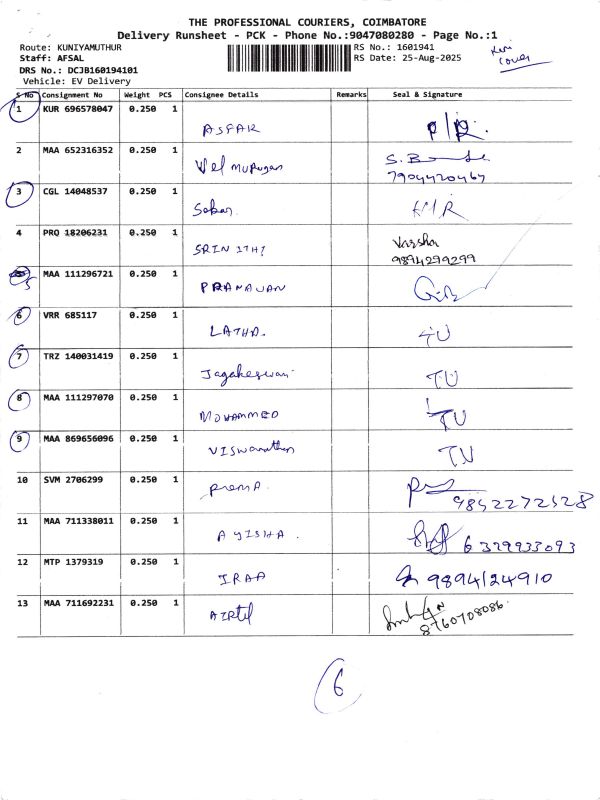 THE PROFESSIONAL COURIERS, COIMBATORE
Delivery Runsheet - PCK - Phone No.:9047080280 - Page No.:1
Route: KUNIYAMUTHUR RS No.: 1601941
Staff: AFSAL RS Date: 25-Aug-2025
DRS No.: DCJB160194101
Vehicle: EV Delivery
cover
S No Consignment No Weight PCS Consignee Details Remarks Seal & Signature
1 KUR 696578047 0.250 1
ASFAR
2 MAA 652316352 0.250 1
Vel murugan
7904420467
3 CGL 14048537 0.250 1
4 PRQ 18206231 0.250 1
SRINITHI Varsha
9894299299
5 MAA 111296721 0.250 1
PRANAVAN
6 VRR 685117 0.250 1
LATHA.
7 TRZ 140031419 0.250 1
Jagakeswari TU
8 MAA 111297070 0.250 1
MOHAMMED TU
9 MAA 869656096 0.250 1
VISwanathan TU
10 SVM 2706299 0.250 1
PremA.
11 MAA 711338011 0.250 1
AYISHA. 6329933093
12 MTP 1379319 0.250 1
IRAA 9894124910
13 MAA 711692231 0.250 1
AIRtel 8760708086.
6